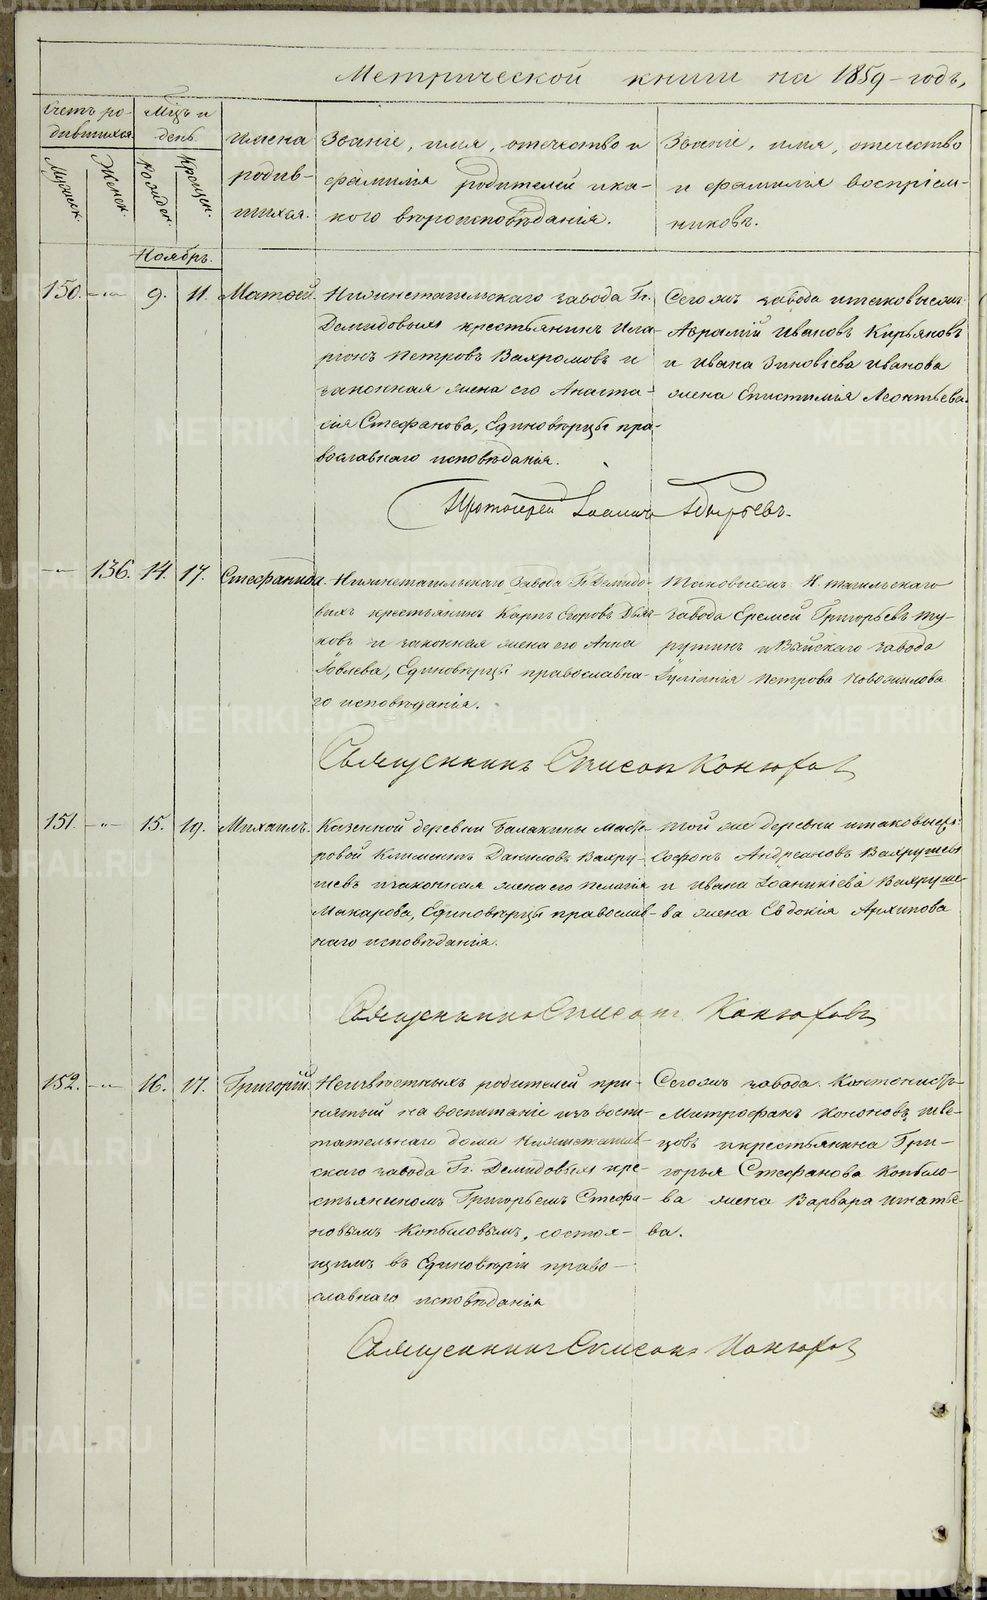 Метрической книги на 1859-годъ,
Счетъ ро-
дившихся.
Муж.
Женск.
Мѣцъ и
день.
Рожден.
Крещен.
Имена
родив-
шихся.
Званіе, имя, отечество и
фамилія родителей и ка-
кого вѣроисповѣданія.
Званіе, имя, отечество
и фамилія воспріем-
никовъ.
Ноябрь.
150. -"- 9. 11. Матѳей.
Нижнетагильскаго завода Гг.
Демидовыхъ крестьянинъ Ила-
ріонъ Петровъ Вахромовъ и
законная жена его Анаста-
сія Стефанова, Единовѣрцы пра-
вославнаго исповѣданія.
Сегожъ завода и таковыежъ
Аврамій Ивановъ Кирьяновъ
и Ивана Зиновьева Иванова
жена Епистимія Леонтьева.
Протоіерей Іоаннъ
-"- 136. 14. 17. Стефанида.
Нижнетагильскаго завода Гг. Демидо-
выхъ крестьянинъ Карпъ Егоровъ
ковъ и законная жена его Анна
Іовлева, Единовѣрцы православна-
го исповѣданія.
Таковыежъ Н. тагильскаго
завода Еремей Григорьевъ Му-
рутинъ и Выйскаго завода
Іуліанія Петрова Новожилова
Священникъ Конюховъ
151. -"- 15. 19. Михаилъ.
Казенной деревни Балакины
ровой Климентъ Даниловъ Вахру-
шевъ и законная жена его Пелагія
Макарова, Единовѣрцы православ-
наго исповѣданія.
Той же деревни и таковыежъ:
Софонъ Андреановъ Вахрушевъ
и Ивана Іоанникіева Вахруше-
ва жена Евдокія Архипова
Священникъ Конюховъ
152. -"- 16. 17. Григорій.
Неизвѣстныхъ родителей при-
нятый на воспитаніе изъ воспи-
тательнаго дома Нижнетагиль-
скаго завода Гг. Демидовыхъ кре-
стьяниномъ Григорьемъ Стефа-
новымъ Копыловымъ, состоя-
щимъ въ Единовѣріи право-
славнаго исповѣданія
Сегожъ завода Кантонистъ
Митрофанъ Кононовъ Шве-
цовъ и крестьянина Гри-
горья Стефанова Копыло-
ва жена Варвара Игнатье-
ва.
Священникъ Конюховъ
METRIKI.GASO-URAL.RU